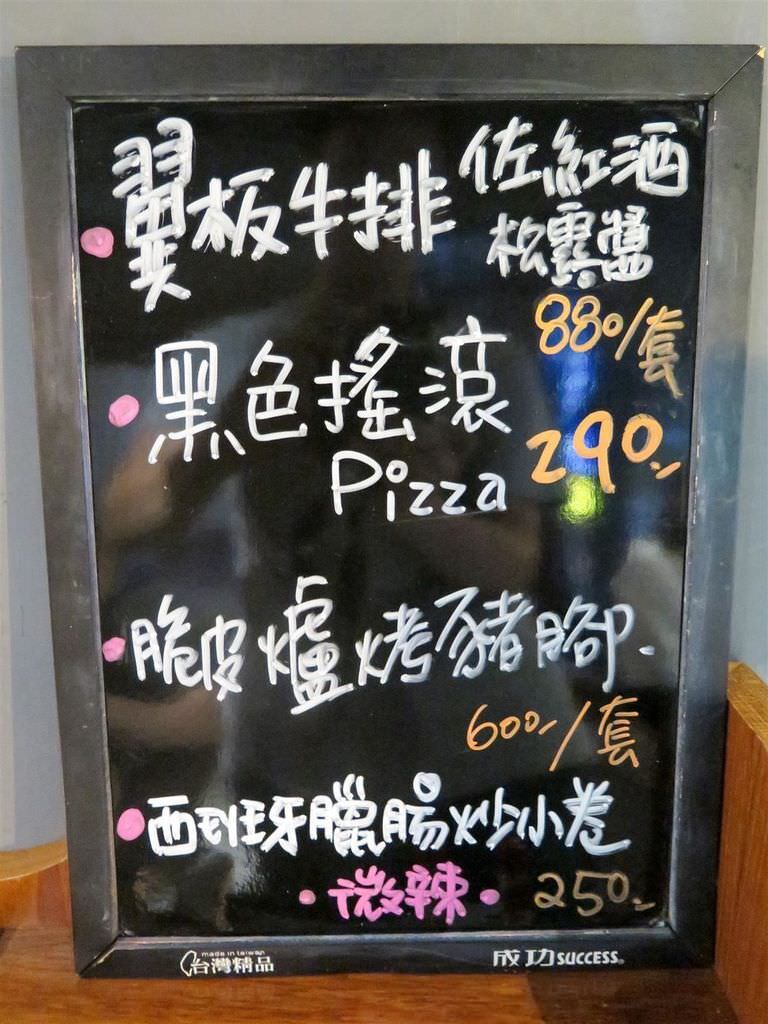 翼板牛排 佐紅酒
松露醬
880/套
黑色搖滾
Pizza 290.-
脆皮爐烤豬腳.
600.-/套
西班牙臘腸炒小卷
·微辣· 250.-
made in taiwan
台灣精品
成功 SUCCESS®